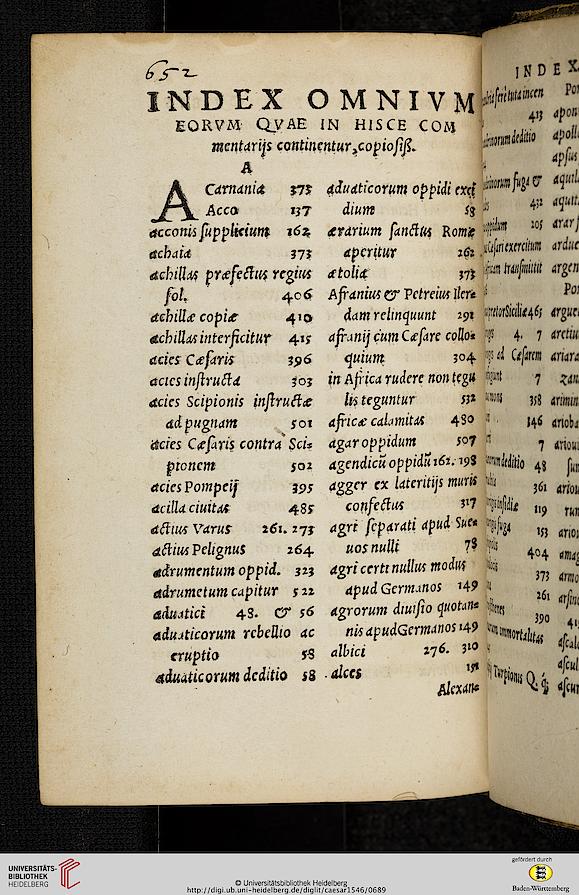 652
INDEX OMNIVM
EORVM QVAE IN HISCE COM
mentarijs continentur, copiosiß.
A
ACarnania 373
Acco 137
acconis supplicium 162
achaia 373
achillas præfectus regius
sol. 406
achillæ copiæ 410
achillas interficitur 415
acies Cæsaris 396
acies instructa 303
acies Scipionis instructæ
ad pugnam 501
acies Cæsaris contra Sci=
pionem 502
acies Pompeij 395
acilla ciuitas 485
actius Varus 261. 273
actius Pelignus 264
adrumentum oppid. 323
adrumetum capitur 522
aduatici 48. & 56
aduaticorum rebellio ac
eruptio 58
aduaticorum deditio 58
aduaticorum oppidi exci
dium 58
ærarium sanctus Romæ
aperitur 262
ætolia 373
Afranius & Petreius Iler=
dam relinquunt 291
afranij cum Cæsare collo=
quium 304
in Africa rudere non tegu
lis teguntur 532
africæ calamitas 480
agar oppidum 507
agendicũ oppidũ 162. 198
agger ex lateritijs muris
confectus 317
agri separati apud Sue=
uos nulli 78
agri certi nullus modus
apud Germanos 149
agrorum diuisio quotan=
nis apud Germanos 149
albici 276. 310
alces 151
Alexan=
INDEX
413
deditio
fuga &
432
205
exercitum
transmittit
465
4. 7
ad Cæsarem
7
358
346
7
deditio 48
361
119
fuga 153
404
373
261
390
immortalitas
Turpionis Q.
UNIVERSITÄTS-
BIBLIOTHEK
HEIDELBERG
© Universitätsbibliothek Heidelberg
http://digi.ub.uni-heidelberg.de/diglit/caesar1546/0689
gefördert durch
Baden-Württemberg